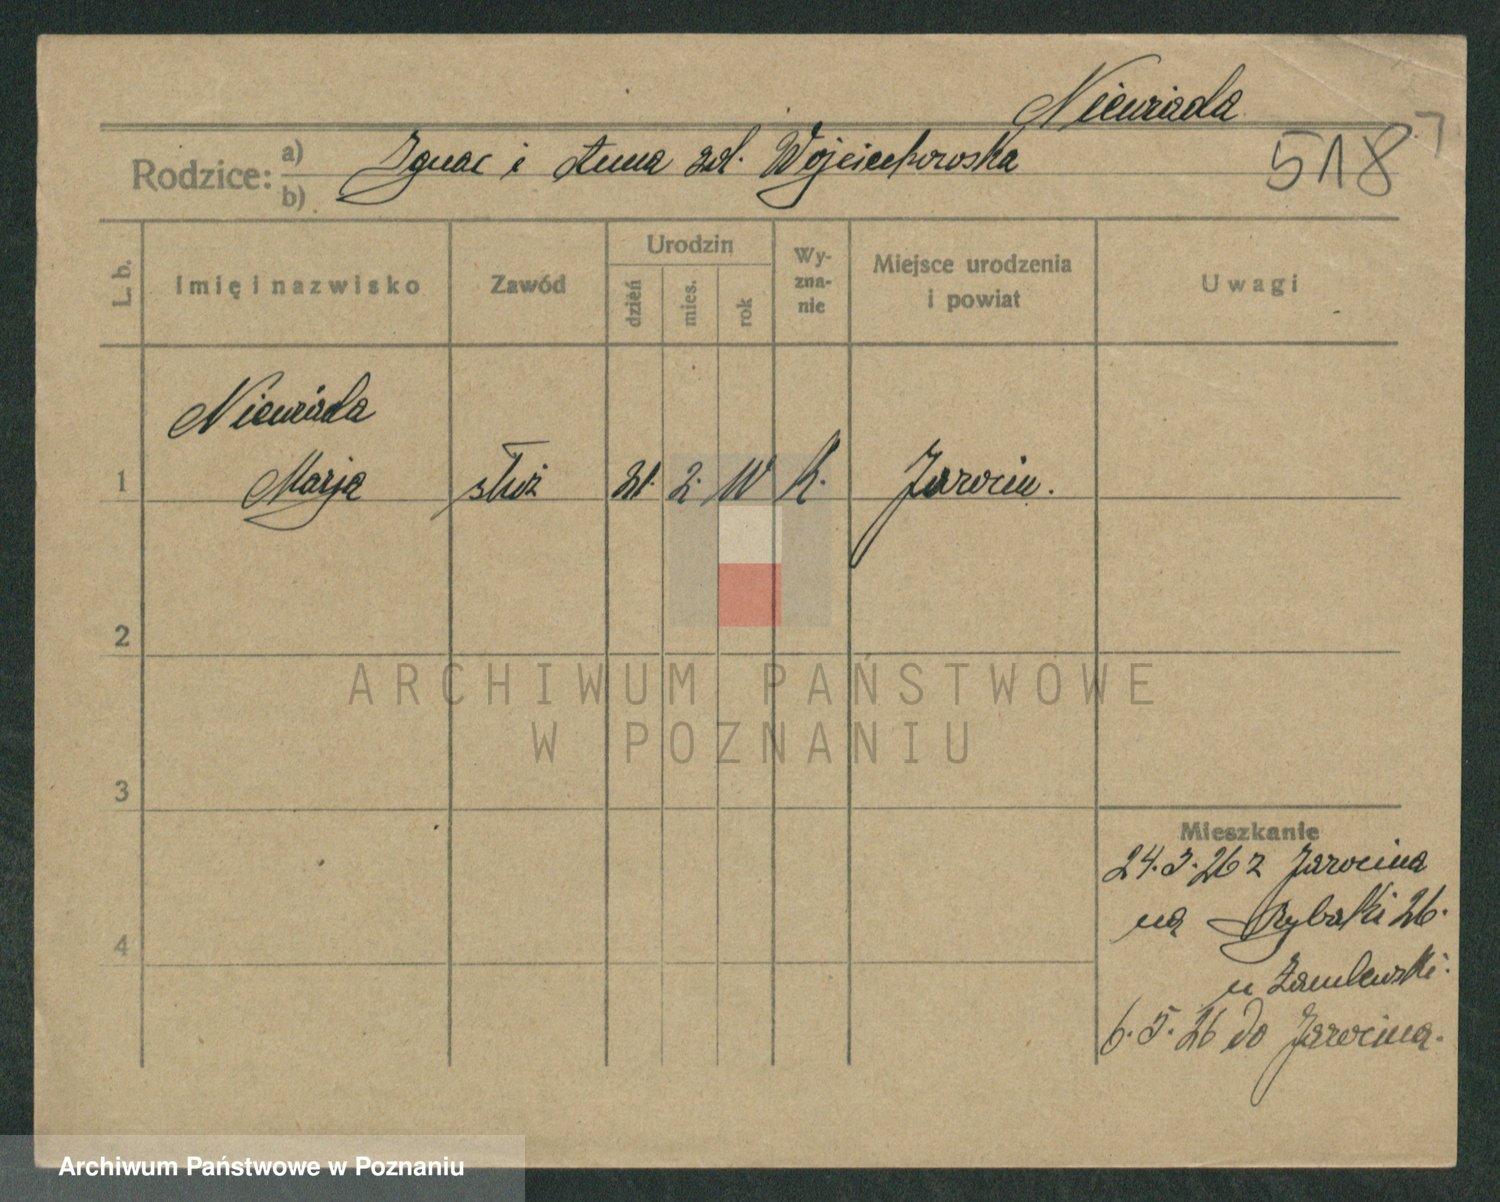 Niewiada
518
Rodzice: a) b)
Ignac i Anna zd. Wojciechowska
L. b.
Imię i nazwisko
Zawód
Urodzin
dzień
mies.
rok
Wy-
zna-
nie
Miejsce urodzenia
i powiat
Uwagi
Niewiada
1 Marja służ 2. K. Jarocin.
2
ARCHIWUM PAŃSTWOWE
W POZNANIU
3
Mieszkanie
24.3.26 z Jarocina
na Rybaki 26.
u
4
6.5.26 do Jarocina.
Archiwum Państwowe w Poznaniu